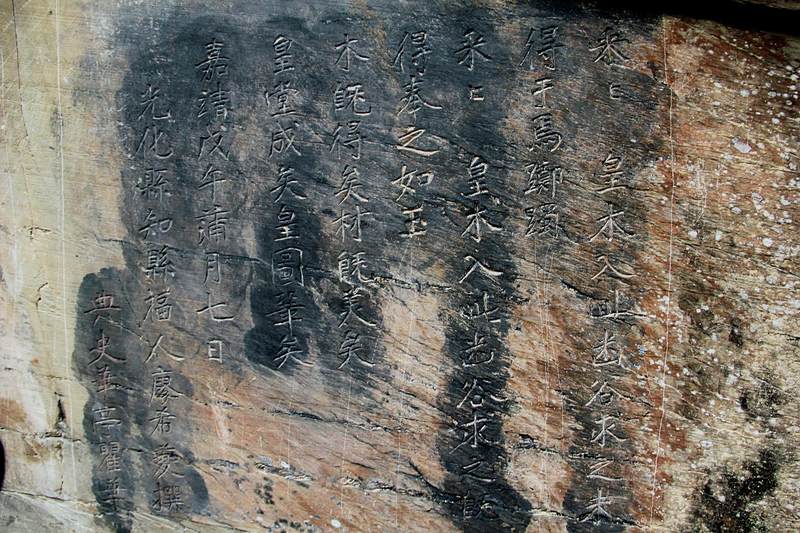 采〻皇木入此幽谷求之未
得于焉躑躅
采〻皇木入此幽谷求之既
得奉之如玉
木既得矣材既美矣
皇堂成矣皇圖鞏矣
嘉靖戊午蒲月七日
光化縣知縣福人廖希夔撰
典史華亭瞿